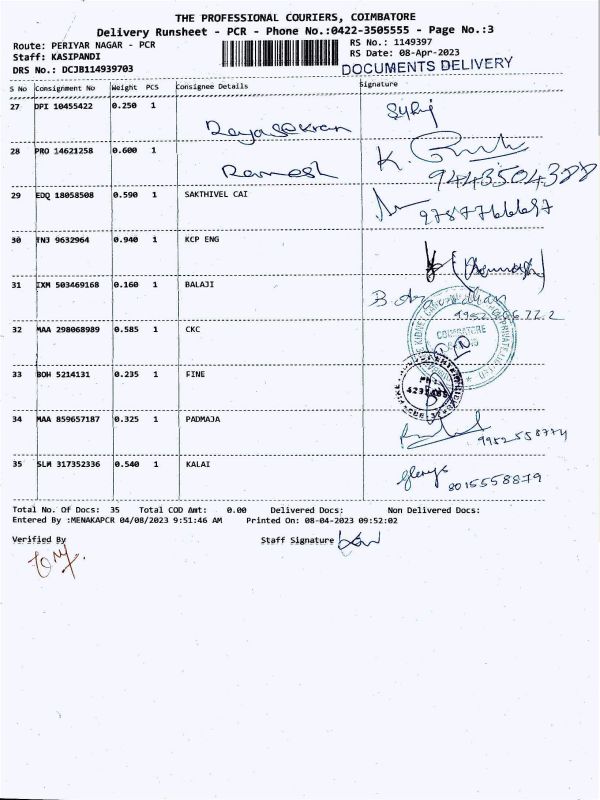 THE PROFESSIONAL COURIERS, COIMBATORE
Delivery Runsheet - PCR - Phone No.:0422-3505555 - Page No.:3
Route: PERIYAR NAGAR - PCR
RS No.: 1149397
Staff: KASIPANDI
RS Date: 08-Apr-2023
DRS No.: DCJB114939703
DOCUMENTS DELIVERY
S No Consignment No Weight PCS Consignee Details Signature
27 DPI 10455422 0.250 1
28 PRO 14621258 0.600 1
Ramesh
9443504388
29 EDQ 18058508 0.590 1 SAKTHIVEL CAI
30 TNJ 9632964 0.940 1 KCP ENG
31 IXM 503469168 0.160 1 BALAJI
32 MAA 298068989 0.585 1 CKC
COIMBATORE
33 BOH 5214131 0.235 1 FINE
34 MAA 859657187 0.325 1 PADMAJA
9952558774
35 SLM 317352336 0.540 1 KALAI
8015558879
Total No. Of Docs: 35 Total COD Amt: 0.00 Delivered Docs: Non Delivered Docs:
Entered By :MENAKAPCR 04/08/2023 9:51:46 AM Printed On: 08-04-2023 09:52:02
Verified By
Staff Signature